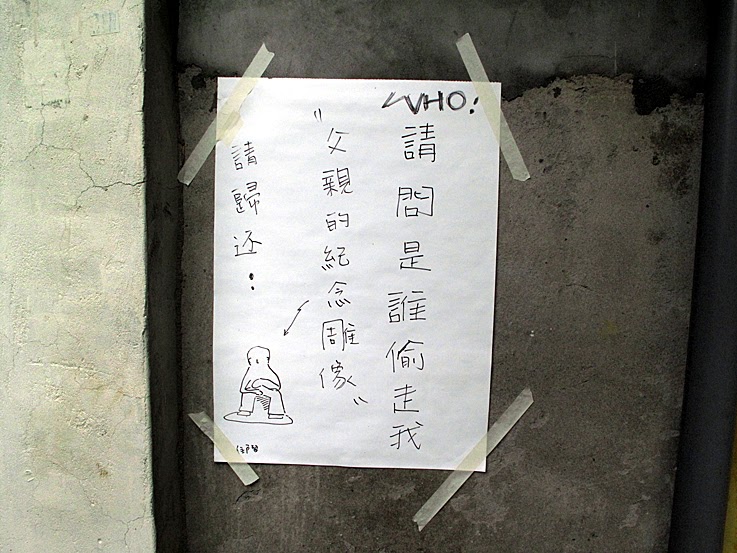 WHO!
請問是誰偷走我
"父親的紀念雕像"
請歸还！